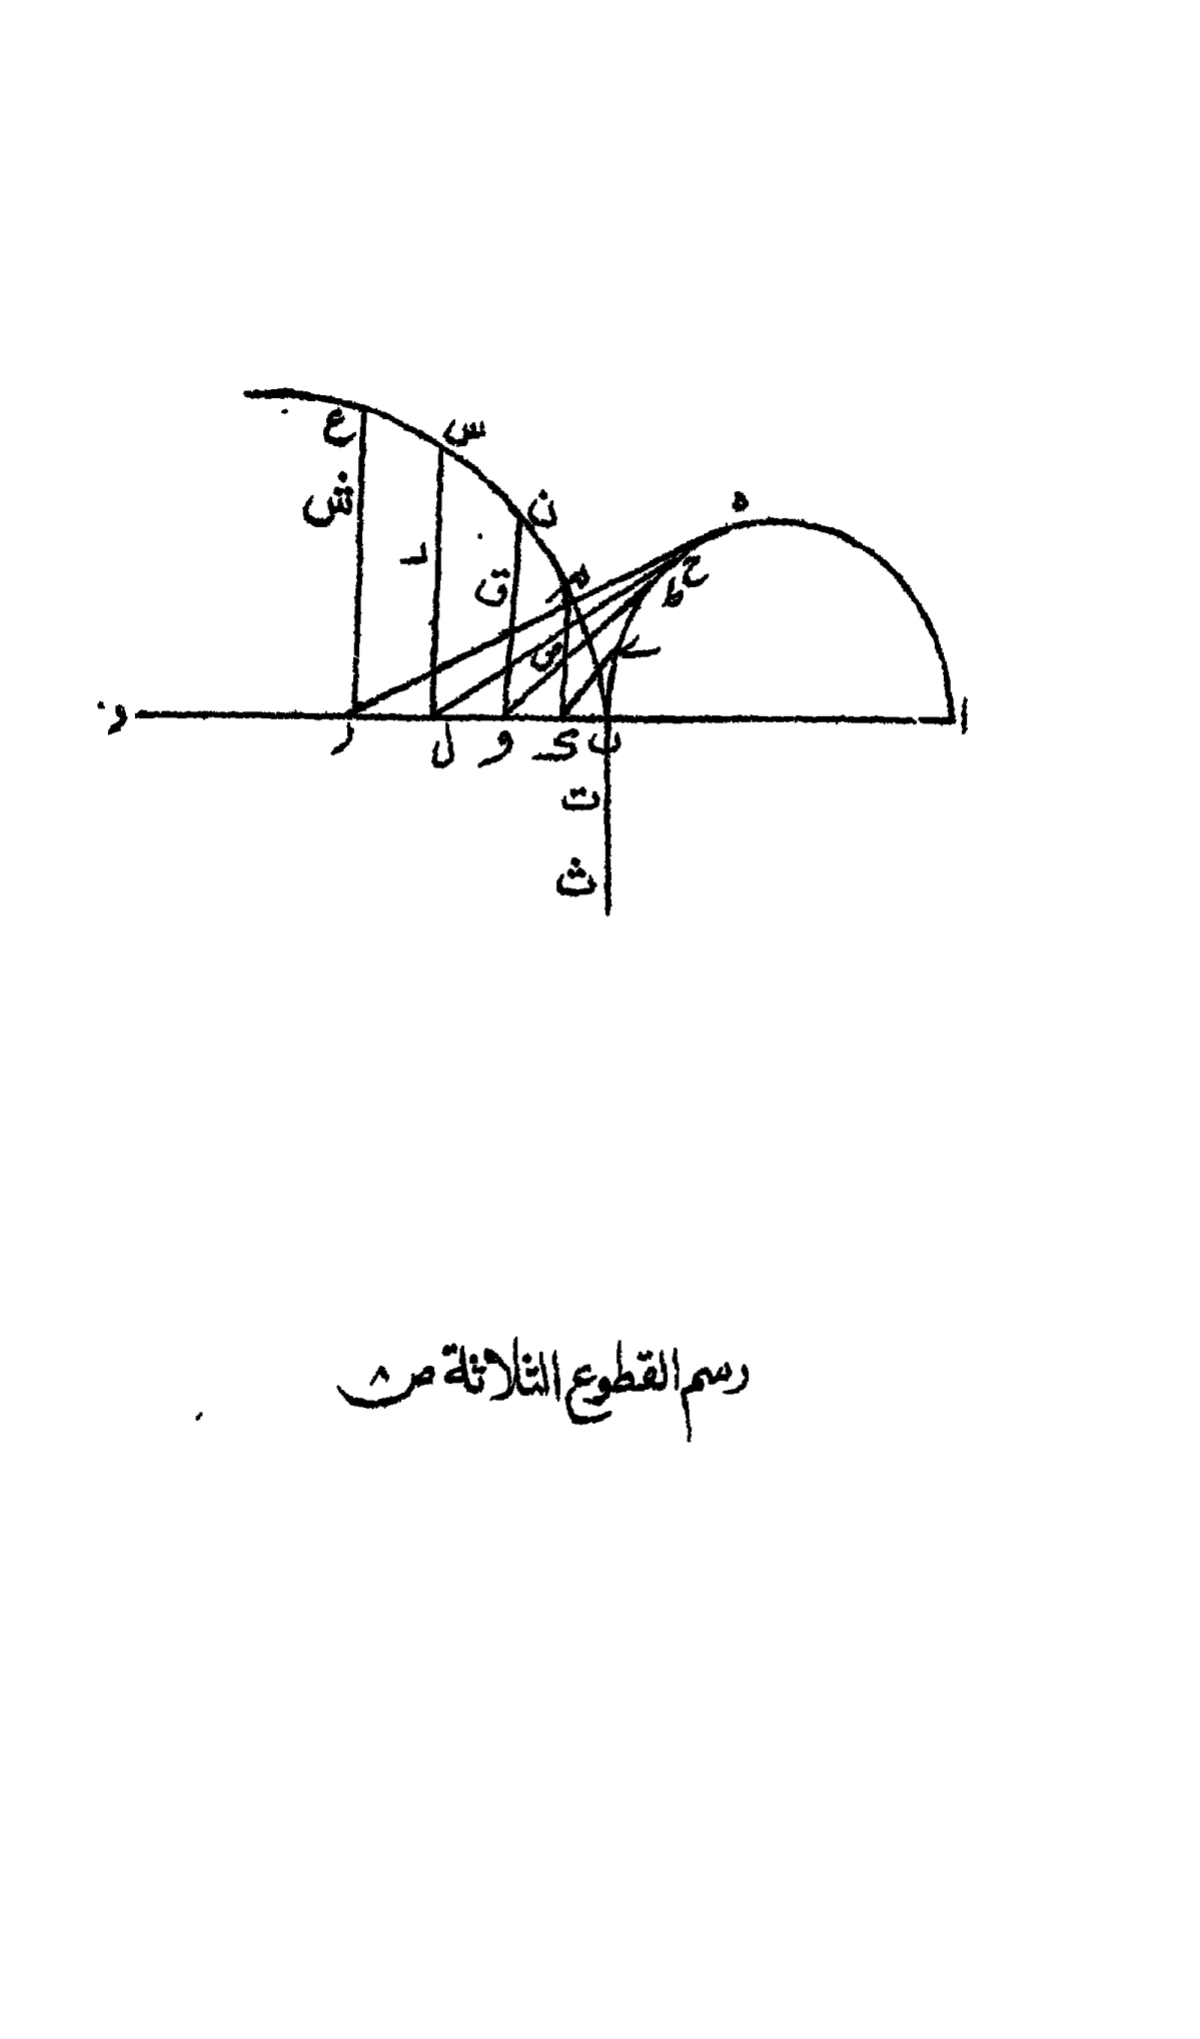 ع
س
ش
ن
ه
ق
ح
ط
ص
و
ر
ل
و
ب
ا
ت
ث
رسم القطوع الثلاثة ص ٨